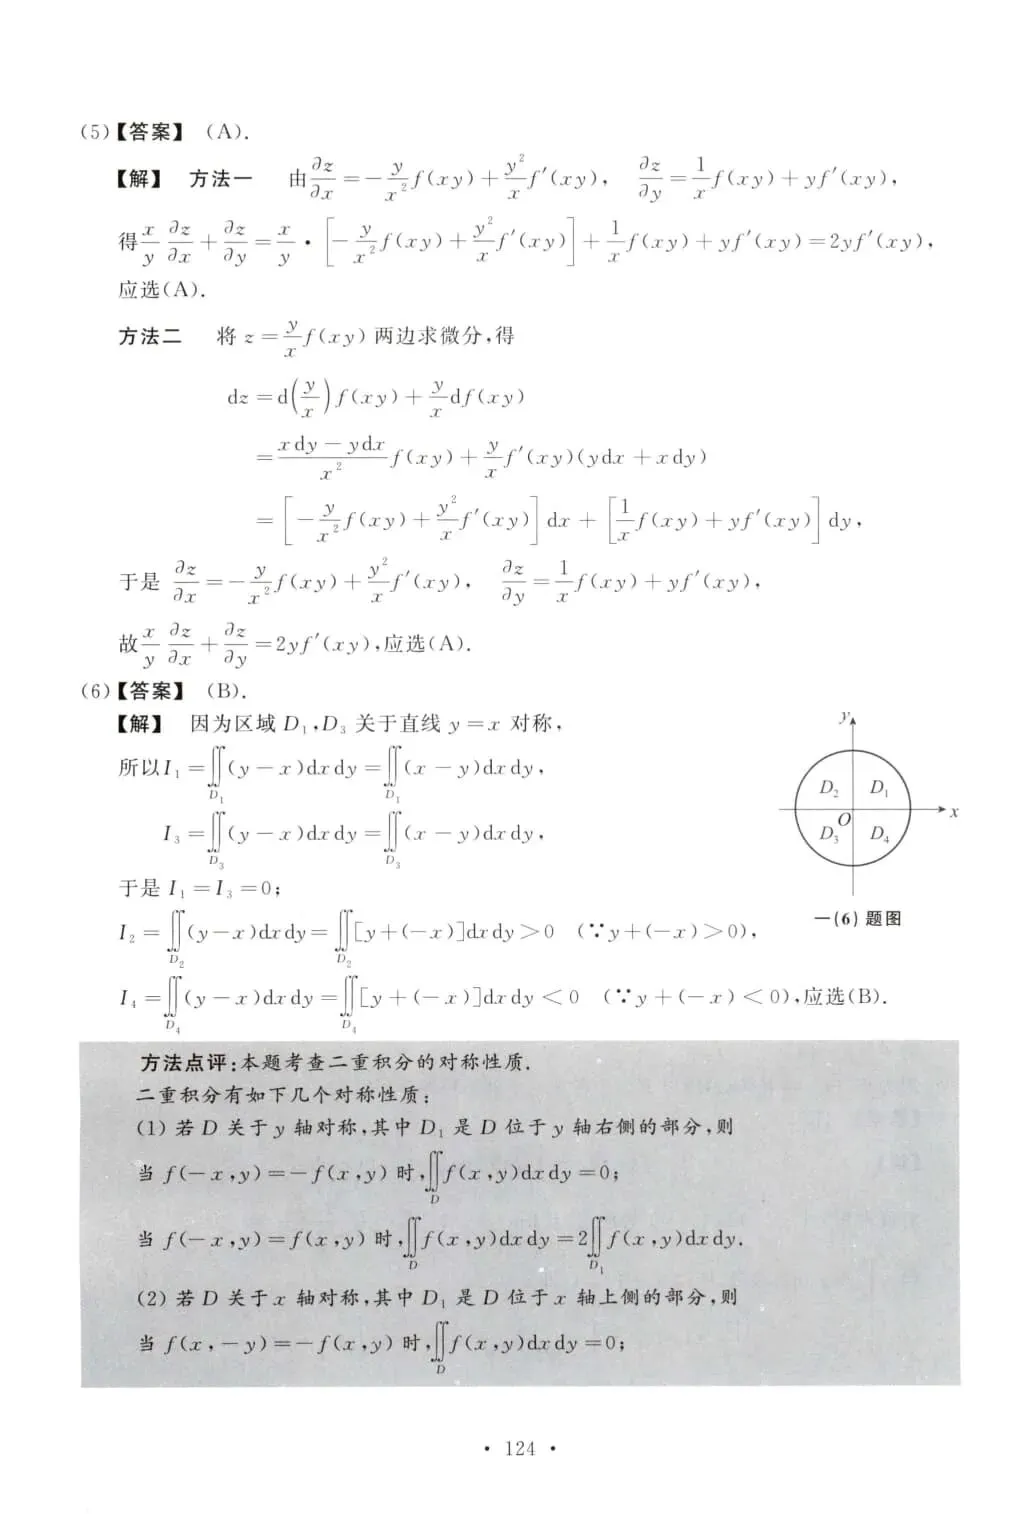 (5)【答案】 (A).
【解】 方法一 由∂z/∂x=−y/x²f(xy)+y²/xf′(xy), ∂z/∂y=1/xf(xy)+yf′(xy),
得x/y ∂z/∂x+∂z/∂y=x/y·[−y/x²f(xy)+y²/xf′(xy)]+1/xf(xy)+yf′(xy)=2yf′(xy),
应选(A).
方法二 将z=y/xf(xy)两边求微分,得
dz=d(y/x)f(xy)+y/xdf(xy)
=(xdy−ydx)/x²f(xy)+y/xf′(xy)(ydx+xdy)
=[−y/x²f(xy)+y²/xf′(xy)]dx+[1/xf(xy)+yf′(xy)]dy,
于是 ∂z/∂x=−y/x²f(xy)+y²/xf′(xy), ∂z/∂y=1/xf(xy)+yf′(xy),
故x/y ∂z/∂x+∂z/∂y=2yf′(xy),应选(A).
(6)【答案】 (B).
【解】 因为区域 D₁,D₃ 关于直线 y=x 对称,
所以I₁=∬_{D₁}(y−x)dxdy=∬_{D₁}(x−y)dxdy,
I₃=∬_{D₃}(y−x)dxdy=∬_{D₃}(x−y)dxdy,
于是 I₁=I₃=0;
I₂=∬_{D₂}(y−x)dxdy=∬_{D₂}[y+(−x)]dxdy>0 (∵y+(−x)>0),
I₄=∬_{D₄}(y−x)dxdy=∬_{D₄}[y+(−x)]dxdy<0 (∵y+(−x)<0),应选(B).
y
D₂ D₁
O x
D₃ D₄
一(6)题图
方法点评:本题考查二重积分的对称性质.
二重积分有如下几个对称性质:
(1) 若 D 关于 y 轴对称,其中 D₁ 是 D 位于 y 轴右侧的部分,则
当 f(−x,y)=−f(x,y) 时,∬_D f(x,y)dxdy=0;
当 f(−x,y)=f(x,y) 时,∬_D f(x,y)dxdy=2∬_{D₁}f(x,y)dxdy.
(2) 若 D 关于 x 轴对称,其中 D₁ 是 D 位于 x 轴上侧的部分,则
当 f(x,−y)=−f(x,y) 时,∬_D f(x,y)dxdy=0;
• 124 •